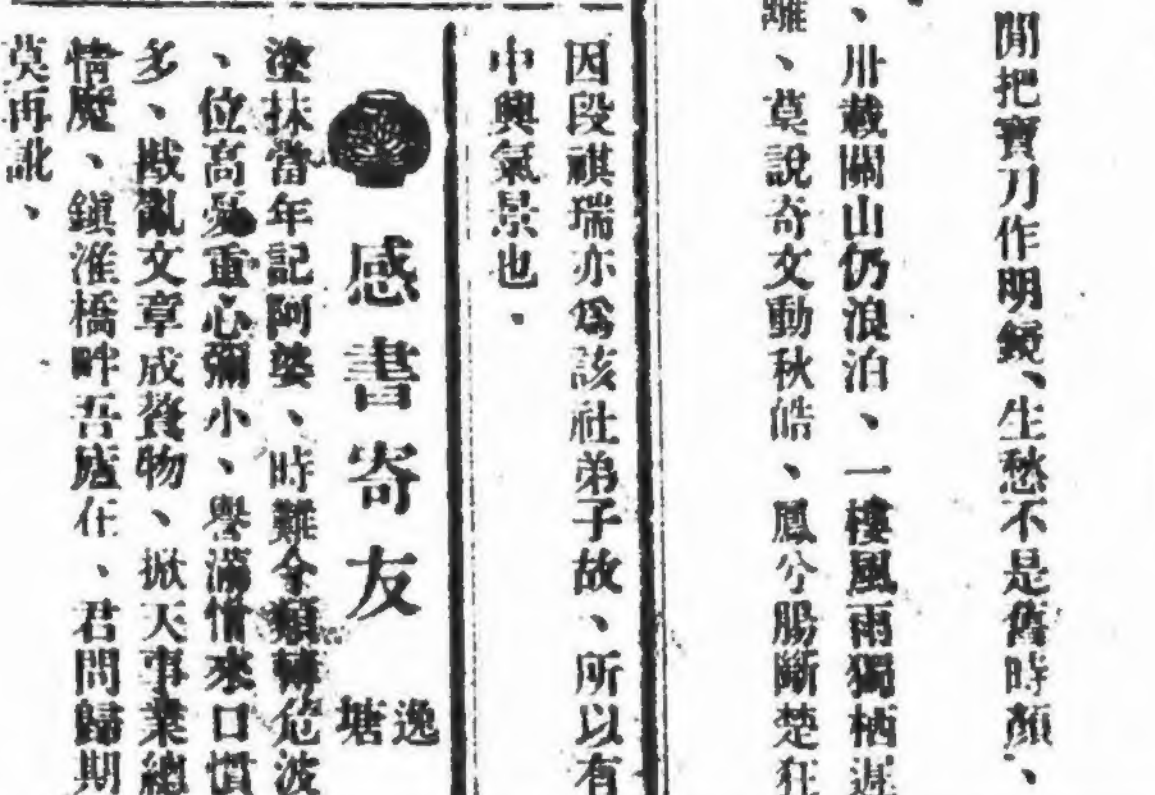 閒把寶刀作明鏡、生愁不是舊時顏、
、卅載關山仍浪泊、一樓風雨獨栖遲
離、莫說奇文動秋皓、鳳兮腸斷楚狂
因段祺瑞亦爲該社弟子故、所以有
中興氣景也．
感書寄友
逸塘
塗抹當年記阿婆、時難令危波
、位高憂重心彌小、譽滿憎來口慣
多、戡亂文章成贅物、掀天事業總
情魔、鎮淮橋畔吾廬在、君問歸期
莫再訛、